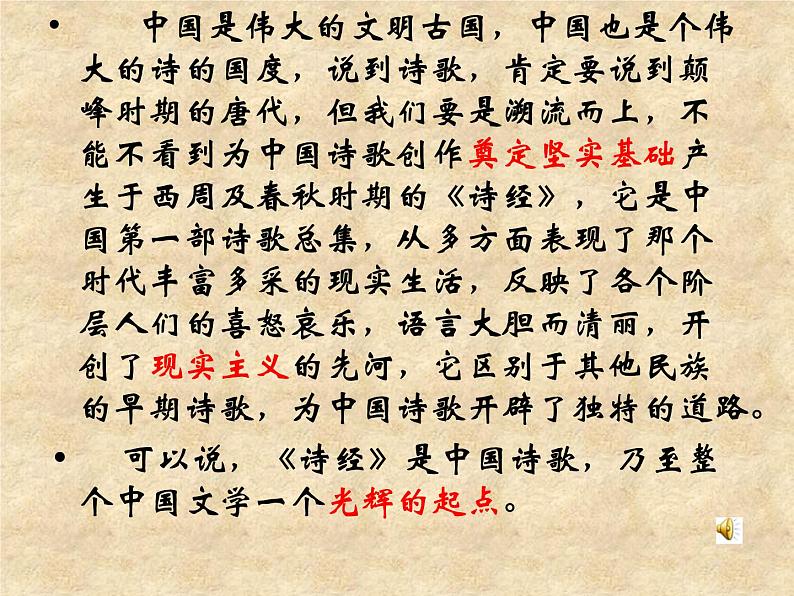 • 中国是伟大的文明古国，中国也是个伟
大的诗的国度，说到诗歌，肯定要说到颠
峰时期的唐代，但我们要是溯流而上，不
能不看到为中国诗歌创作奠定坚实基础产
生于西周及春秋时期的《诗经》，它是中
国第一部诗歌总集，从多方面表现了那个
时代丰富多采的现实生活，反映了各个阶
层人们的喜怒哀乐，语言大胆而清丽，开
创了现实主义的先河，它区别于其他民族
的早期诗歌，为中国诗歌开辟了独特的道路。
• 可以说，《诗经》是中国诗歌，乃至整
个中国文学一个光辉的起点。